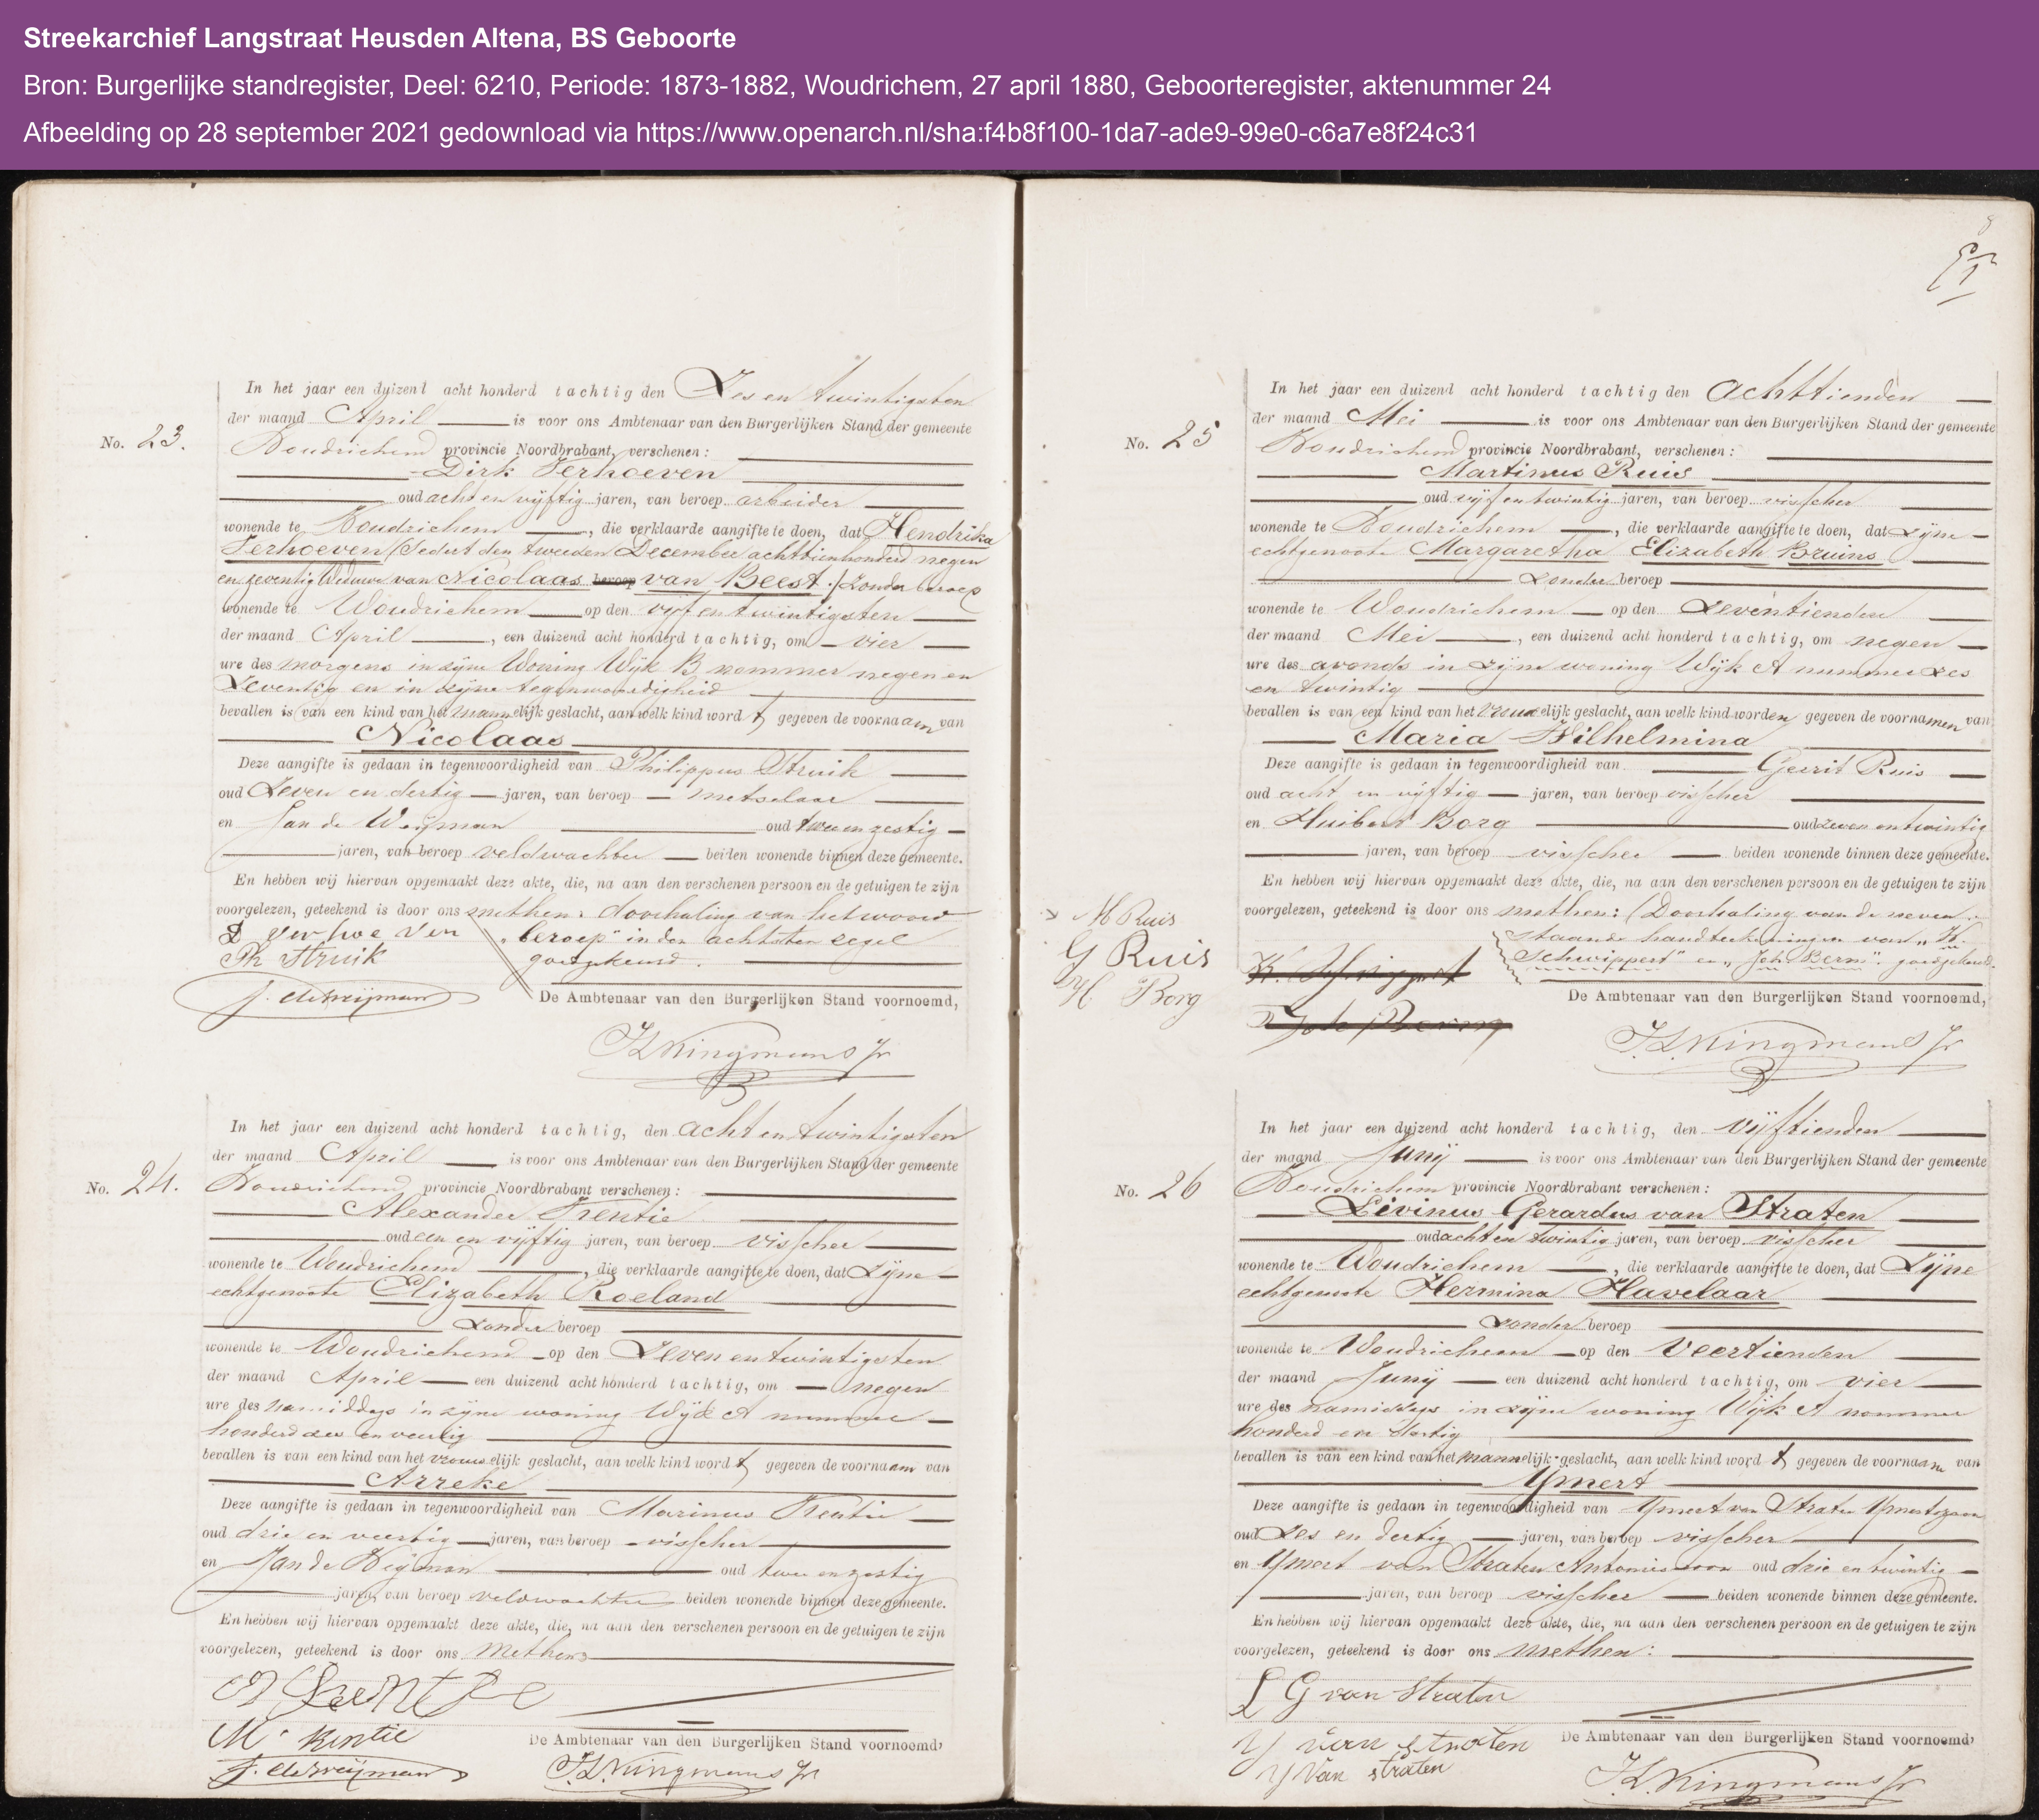 Streekarchief Langstraat Heusden Altena, BS Geboorte
Bron: Burgerlijke standregister, Deel: 6210, Periode: 1873-1882, Woudrichem, 27 april 1880, Geboorteregister, aktenummer 24
Afbeelding op 28 september 2021 gedownload via https://www.openarch.nl/sha:f4b8f100-1da7-ade9-99e0-c6a7e8f24c31
No. 23.
In het jaar een duizend acht honderd tachtig den Zes en twintigsten
der maand April is voor ons Ambtenaar van den Burgerlijken Stand der gemeente
Woudrichem provincie Noordbrabant, verschenen:
Dirk Verhoeven
oud acht en vijftig jaren, van beroep arbeider
wonende te Woudrichem, die verklaarde aangifte te doen, dat Hendrika
Verhoeven (sedert den tweeden December achttienhonderd negen
en zeventig Weduwe van Nicolaas beroep van Beest.) zonder beroep
wonende te Woudrichem op den vijf en twintigsten
der maand April, een duizend acht honderd tachtig, om vier
ure des morgens in zijne Woning Wijk B nommer negen en
Zeventig en in zijne tegenwoordigheid
bevallen is van een kind van het mannelijk geslacht, aan welk kind wordt gegeven de voornaam van
Nicolaas
Deze aangifte is gedaan in tegenwoordigheid van Philippus Struik
oud Zeven en dertig jaren, van beroep metselaar
en Jan de Weijman oud twee en zestig
jaren, van beroep veldwachter beiden wonende binnen deze gemeente.
En hebben wij hiervan opgemaakt deze akte, die, na aan den verschenen persoon en de getuigen te zijn
voorgelezen, geteekend is door ons methen: doorhaling van het woord
"beroep" in den achtsten regel
goedgekeurd.
D verhoeven
Ph Struik
J. de Weijman
De Ambtenaar van den Burgerlijken Stand voornoemd,
Kingmans Jr
No. 24.
In het jaar een duizend acht honderd tachtig, den acht en twintigsten
der maand April is voor ons Ambtenaar van den Burgerlijken Stand der gemeente
Woudrichem provincie Noordbrabant verschenen:
Alexander Kentie
oud een en vijftig jaren, van beroep visscher
wonende te Woudrichem, die verklaarde aangifte te doen, dat Zijne
echtgenoote Elizabeth Roeland
zonder beroep
wonende te Woudrichem op den Zeven en twintigsten
der maand April een duizend acht honderd tachtig, om negen
ure des namiddags in zijne woning Wijk A nummer
honderd zes en veertig
bevallen is van een kind van het vrouwelijk geslacht, aan welk kind wordt gegeven de voornaam van
Arreke
Deze aangifte is gedaan in tegenwoordigheid van Marinus Kentie
oud drie en veertig jaren, van beroep visscher
en Jan de Weijman oud twee en zestig
jaren, van beroep veldwachter beiden wonende binnen deze gemeente.
En hebben wij hiervan opgemaakt deze akte, die, na aan den verschenen persoon en de getuigen te zijn
voorgelezen, geteekend is door ons methen
M. Kentie
J. de Weijman
De Ambtenaar van den Burgerlijken Stand voornoemd,
Kingmans Jr
No. 25
In het jaar een duizend acht honderd tachtig den achttienden
der maand Mei is voor ons Ambtenaar van den Burgerlijken Stand der gemeente
Woudrichem provincie Noordbrabant, verschenen:
Martinus Ruis
oud vijf en twintig jaren, van beroep visscher
wonende te Woudrichem, die verklaarde aangifte te doen, dat zijne
echtgenoote Margaretha Elizabeth Bruins
zonder beroep
wonende te Woudrichem op den Zeventienden
der maand Mei, een duizend acht honderd tachtig, om negen
ure des avonds in zijne woning Wijk A nummer zes
en twintig
bevallen is van een kind van het vrouwelijk geslacht, aan welk kind worden gegeven de voornamen van
Maria Wilhelmina
Deze aangifte is gedaan in tegenwoordigheid van Gerrit Ruis
oud acht en vijftig jaren, van beroep visscher
en Huibert Borg oud zeven en twintig
jaren, van beroep visscher beiden wonende binnen deze gemeente.
En hebben wij hiervan opgemaakt deze akte, die, na aan den verschenen persoon en de getuigen te zijn
voorgelezen, geteekend is door ons methen: (Doorhaling van de neven
staande handteekeningen van "K.
Schwippert" en "Joh Berns" goedgekeurd.
M Ruis
G Ruis
H. Borg
K. Schwippert
De Ambtenaar van den Burgerlijken Stand voornoemd,
Kingmans Jr
No. 26
In het jaar een duizend acht honderd tachtig, den vijftienden
der maand Junij is voor ons Ambtenaar van den Burgerlijken Stand der gemeente
Woudrichem provincie Noordbrabant verschenen:
Livinus Gerardus van Straten
oud acht en twintig jaren, van beroep visscher
wonende te Woudrichem, die verklaarde aangifte te doen, dat Zijne
echtgenoote Hermina Havelaar
zonder beroep
wonende te Woudrichem op den Veertienden
der maand Junij een duizend acht honderd tachtig, om vier
ure des namiddags in zijne woning Wijk A nommer
honderd en dertig
bevallen is van een kind van het mannelijk geslacht, aan welk kind wordt gegeven de voornaam van
Ymert
Deze aangifte is gedaan in tegenwoordigheid van Ymert van Straten Ymertszoon
oud Zes en dertig jaren, van beroep visscher
en Ymert van Straten Antoniszoon oud drie en twintig
jaren, van beroep visscher beiden wonende binnen deze gemeente.
En hebben wij hiervan opgemaakt deze akte, die, na aan den verschenen persoon en de getuigen te zijn
voorgelezen, geteekend is door ons methen:
L G van Straten
Y van straten
Y van straten
De Ambtenaar van den Burgerlijken Stand voornoemd,
Kingmans Jr